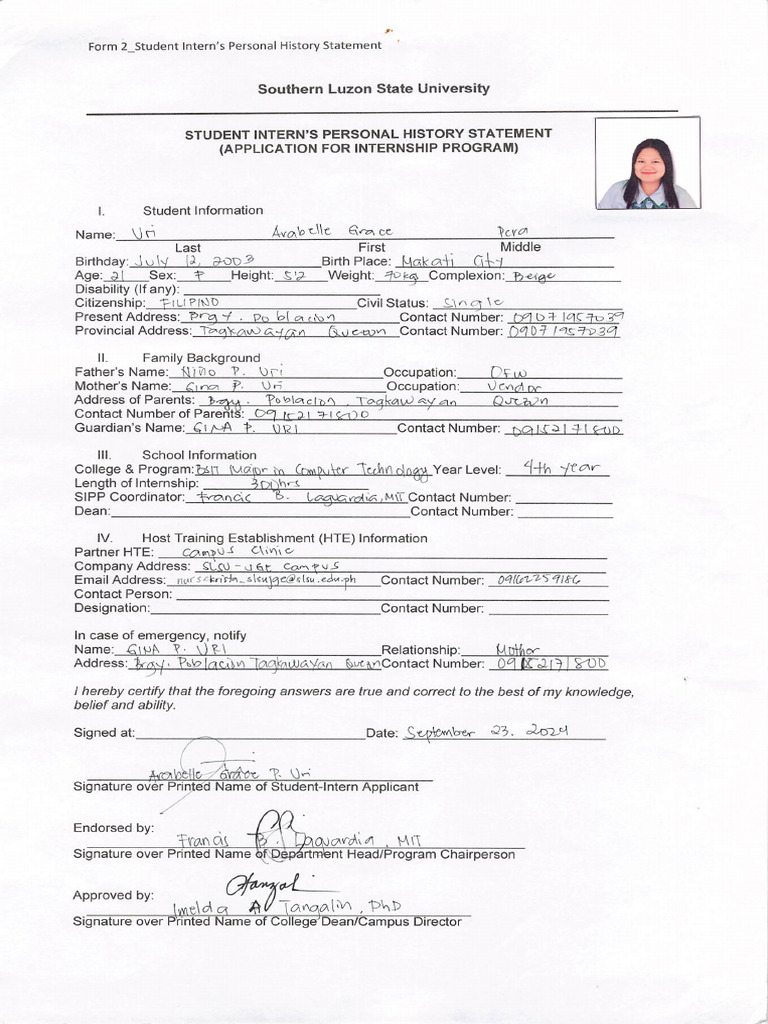 Form 2_Student Intern's Personal History Statement
Southern Luzon State University
STUDENT INTERN'S PERSONAL HISTORY STATEMENT
(APPLICATION FOR INTERNSHIP PROGRAM)
I. Student Information
Name: Uri Arabelle Grace Pera
Last First Middle
Birthday: July 12, 2003 Birth Place: Makati City
Age: 21 Sex: F Height: 5'2 Weight: 70kg Complexion: Beige
Disability (If any):
Citizenship: FILIPINO Civil Status: Single
Present Address: Brgy. Poblacion Contact Number: 09071957039
Provincial Address: Tagkawayan Quezon Contact Number: 09071957039
II. Family Background
Father's Name: Niño P. Uri Occupation: OFW
Mother's Name: Gina P. Uri Occupation: Vendor
Address of Parents: Brgy. Poblacion, Tagkawayan Quezon
Contact Number of Parents: 09152171800
Guardian's Name: GINA P. URI Contact Number: 09152171800
III. School Information
College & Program: BSIT Major in Computer Technology Year Level: 4th year
Length of Internship: 300hrs
SIPP Coordinator: Francis B. Laguardia, MIT Contact Number:
Dean: Contact Number:
IV. Host Training Establishment (HTE) Information
Partner HTE: Campus Clinic
Company Address: SLSU-JGE Campus
Email Address: nursekrista_slsujge@slsu.edu.ph Contact Number: 09162259186
Contact Person:
Designation: Contact Number:
In case of emergency, notify
Name: GINA P. URI Relationship: Mother
Address: Brgy. Poblacion Tagkawayan Quezon Contact Number: 09152171800
I hereby certify that the foregoing answers are true and correct to the best of my knowledge,
belief and ability.
Signed at: Date: September 23, 2024
Arabelle Grace P. Uri
Signature over Printed Name of Student-Intern Applicant
Endorsed by:
Francis B. Laguardia, MIT
Signature over Printed Name of Department Head/Program Chairperson
Approved by:
Imelda A Tangalin, PhD
Signature over Printed Name of College Dean/Campus Director